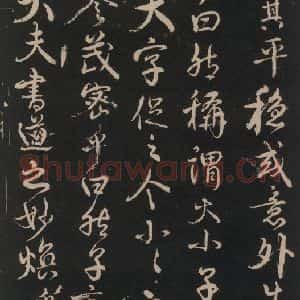 其平穩或意外生
曰然稱謂大小子
大字促之令小〻
令茂密乎曰然子言
矣夫書道之妙煥乎
Shufawang.cn